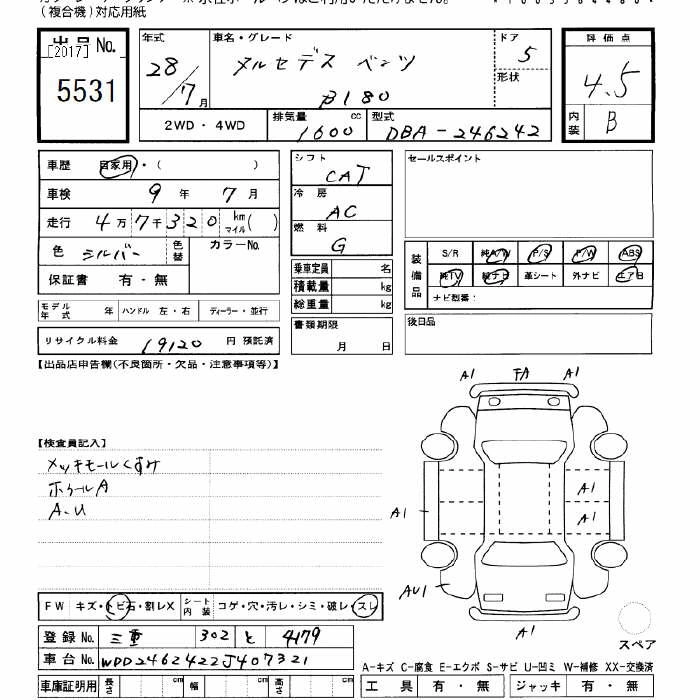 (複合機)対応用紙
出品No. 年式 車名・グレード ドア 評価点
[2017] 28/7月 メルセデス ベンツ 5 4.5
5531 B180 形状
2WD・4WD 排気量 1600 cc 型式 DBA-246242 内装 B
車歴 自家用・( ) シフト CAT セールスポイント
車検 9年 7月 冷房 AC
走行 4万7千320 km マイル( ) 燃料 G
色 シルバー 色替 カラーNo.
保証書 有・無
装備品 S/R 純A/W P/S P/W ABS
純TV 純ナビ 革シート 外ナビ エアB
ナビ型番:
乗車定員 名
積載量 kg
総重量 kg
モデル年式 年 ハンドル 左・右 ディーラー・並行
書類期限 月 日
後日品
リサイクル料金 19120 円 預託済
【出品店申告欄(不良箇所・欠品・注意事項等)】
A1 FA A1
【検査員記入】
メッキモールくすみ
ホイールA
A-U
A1
A1 A1
AU1
A1
FW キズ・トビ石・割レX シート内装 コゲ・穴・汚レ・シミ・破レ・スレ
スペア
登録No. 三重 302 と 4179
車台No. WDD2462422J407321
A-キズ C-腐食 E-エクボ S-サビ U-凹ミ W-補修 XX-交換済
車庫証明用 長さ cm 幅 cm 高さ cm 工具 有・無 ジャッキ 有・無